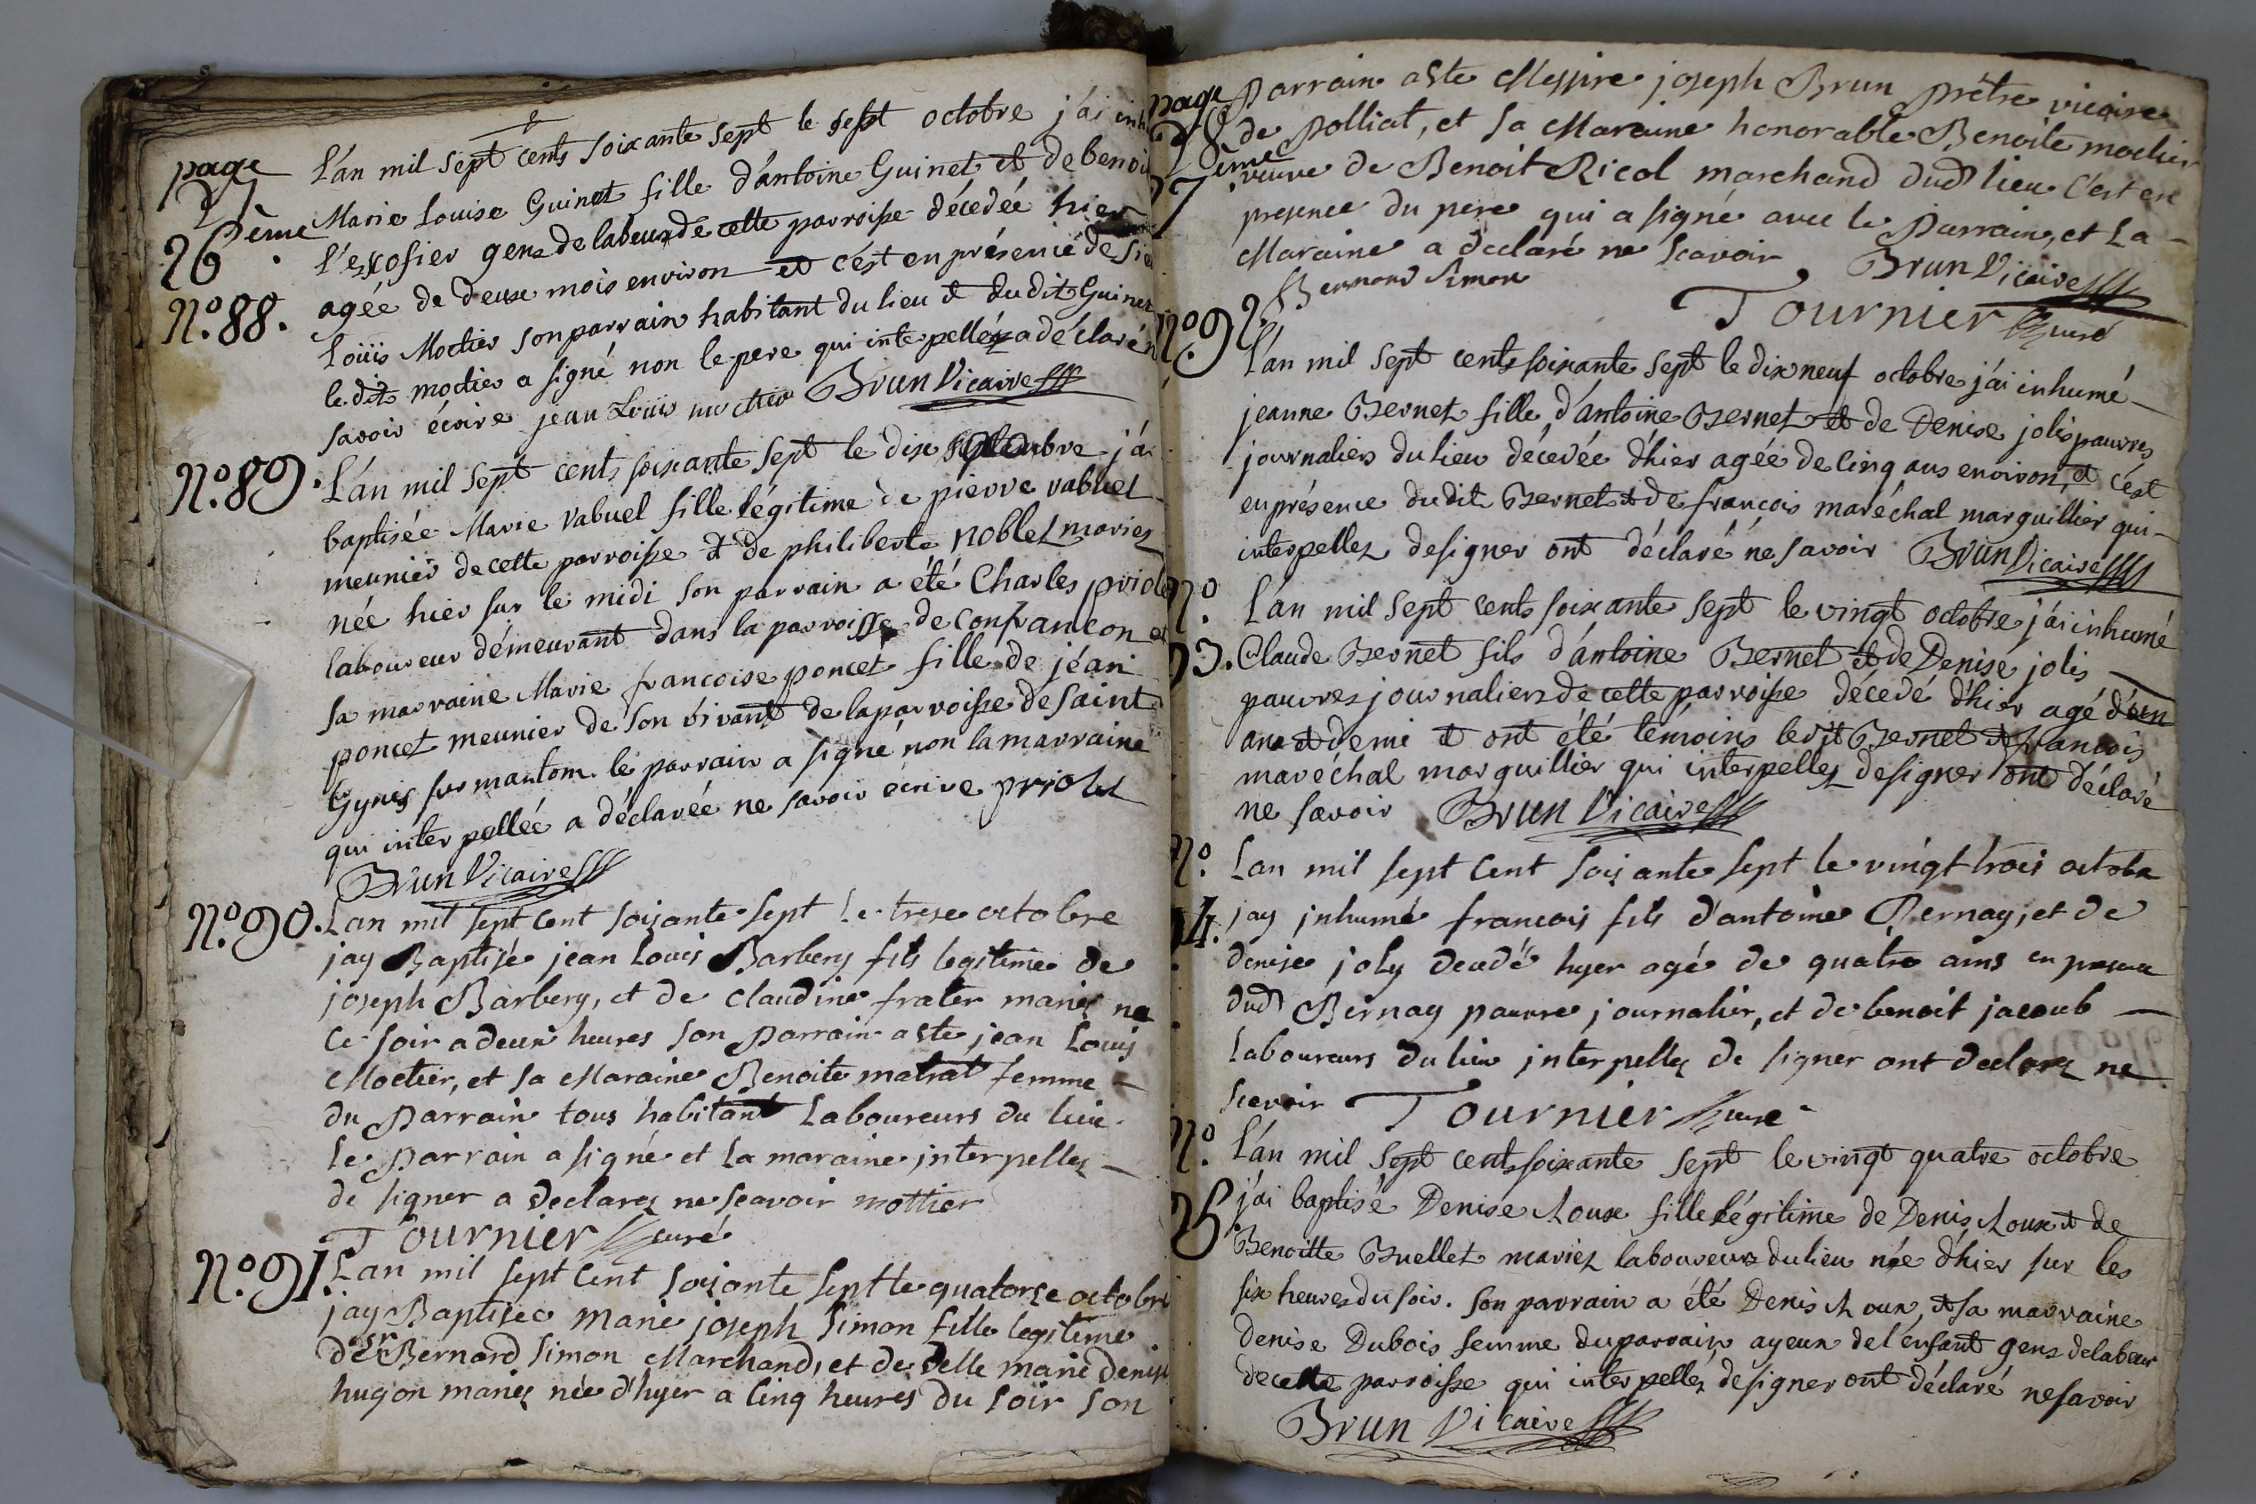 page
26ème
N.º 88.
L'an mil sept cents soixante sept le sept octobre j'ai inh
Marie Louise Guinet fille d'antoine Guinet et de benoi
gens de labeur de cette parroisse décédée hier
agée de deux mois environ et c'est en présence de
Loüis Moctier son parrain habitant du lieu et du dit Guinet
le dit moctier a signé non le pere qui interpellez a déclaré n
savoir écrire jean Loüis moctier Brun Vicaire
N.º 89.
L'an mil sept cents soixante sept le dix j'ai
baptisée Marie Vabuel fille légitime de pierre vabuel
meunier de cette parroisse et de philiberte noblet mariez
née hier sur le midi son parrain a été Charles priolet
laboureur démeurant dans la parroisse de confrancon et
sa marraine Marie francoise poncet fille de jéan
poncet meunier de son vivant de la parroisse de saint
Gynis sur manton. le parrain a signé non la marraine
qui interpellée a déclarée ne savoir écrire priolet
Brun Vicaire
N.º 90.
Lan mil sept cent soixante sept le trese octobre
jay Baptisé jean Louis Barbery fils legitime de
joseph Barbery, et de Claudine frater mariés ne
Ce soir a deux heures son Parrain a ste jean Louis
Moctier, et sa Maraine Benoite matrat femme
du Parrain tous habitant Laboureurs du lieu
le Parrain a signé et la maraine interpellez
de signer a declarez ne scavoir mottier
Tournier curé
N.º 91.
Lan mil sept cent soixante sept le quatorze octobre
jay Baptisée marie joseph Simon fille legitime
de sr Bernard Simon Marchand, et de delle marie denise
hugon mariez née d'hyer a cinq heures du soir son
page
27.
Parrain a ste Messire joseph Brun Prêtre vicaire
de Polliat, et sa Maraine honorable Benoite moctier
veuve de Benoit Ricol marchand dud lieu C'est en
presence du pere qui a signé avec le Parrain, et La
Maraine a declaré ne Scavoir Brun Vicaire
Bernard Simon
Tournier curé
Nº 92.
L'an mil sept cents soixante sept le dix neuf octobre j'ai inhumé
jeanne Bernet fille d'antoine Bernet et de Denise jolis pauvres
journaliers du lieu décedée d'hier agée de cinq ans environ, et c'est
en présence du dit Bernet et de françois maréchal marguillier qui
interpellez de signer ont déclaré ne savoir Brun Vicaire
Nº
93.
L'an mil sept cents soixante sept le vingt octobre j'ai inhumé
Claude Bernet fils d'antoine Bernet et de Denise jolis
pauvres journaliers de cette parroisse décedé d'hier agé d'un
ans et demie et ont été témoins le dit Bernet et francois
maréchal marguillier qui interpellez de signer ont déclaré
ne savoir Brun Vicaire
Nº
94.
Lan mil sept Cent soixante sept le vingt trois octobre
jay inhumé francois fils d'antoine Bernay, et de
denise joly decedé hyer agé de quatre ans en presence
dud Bernay pauvre journalier, et de benoit jacoub
Laboureurs du lieu interpellez de signer ont declarez ne
Scavoir Tournier curé
Nº
95
L'an mil sept cents soixante sept le vingt quatre octobre
j'ai baptisé Denise Choux fille légitime de Denis Choux et de
Benoitte Buellet mariez laboureurs du lieu née d'hier sur les
six heures du soir. son parrain a été Denis Choux, et sa marraine
Denise Dubois femme du parrain ayeux de l'enfant gens de labeur
de cette parroisse qui interpellés de signer ont déclaré ne savoir
Brun Vicaire